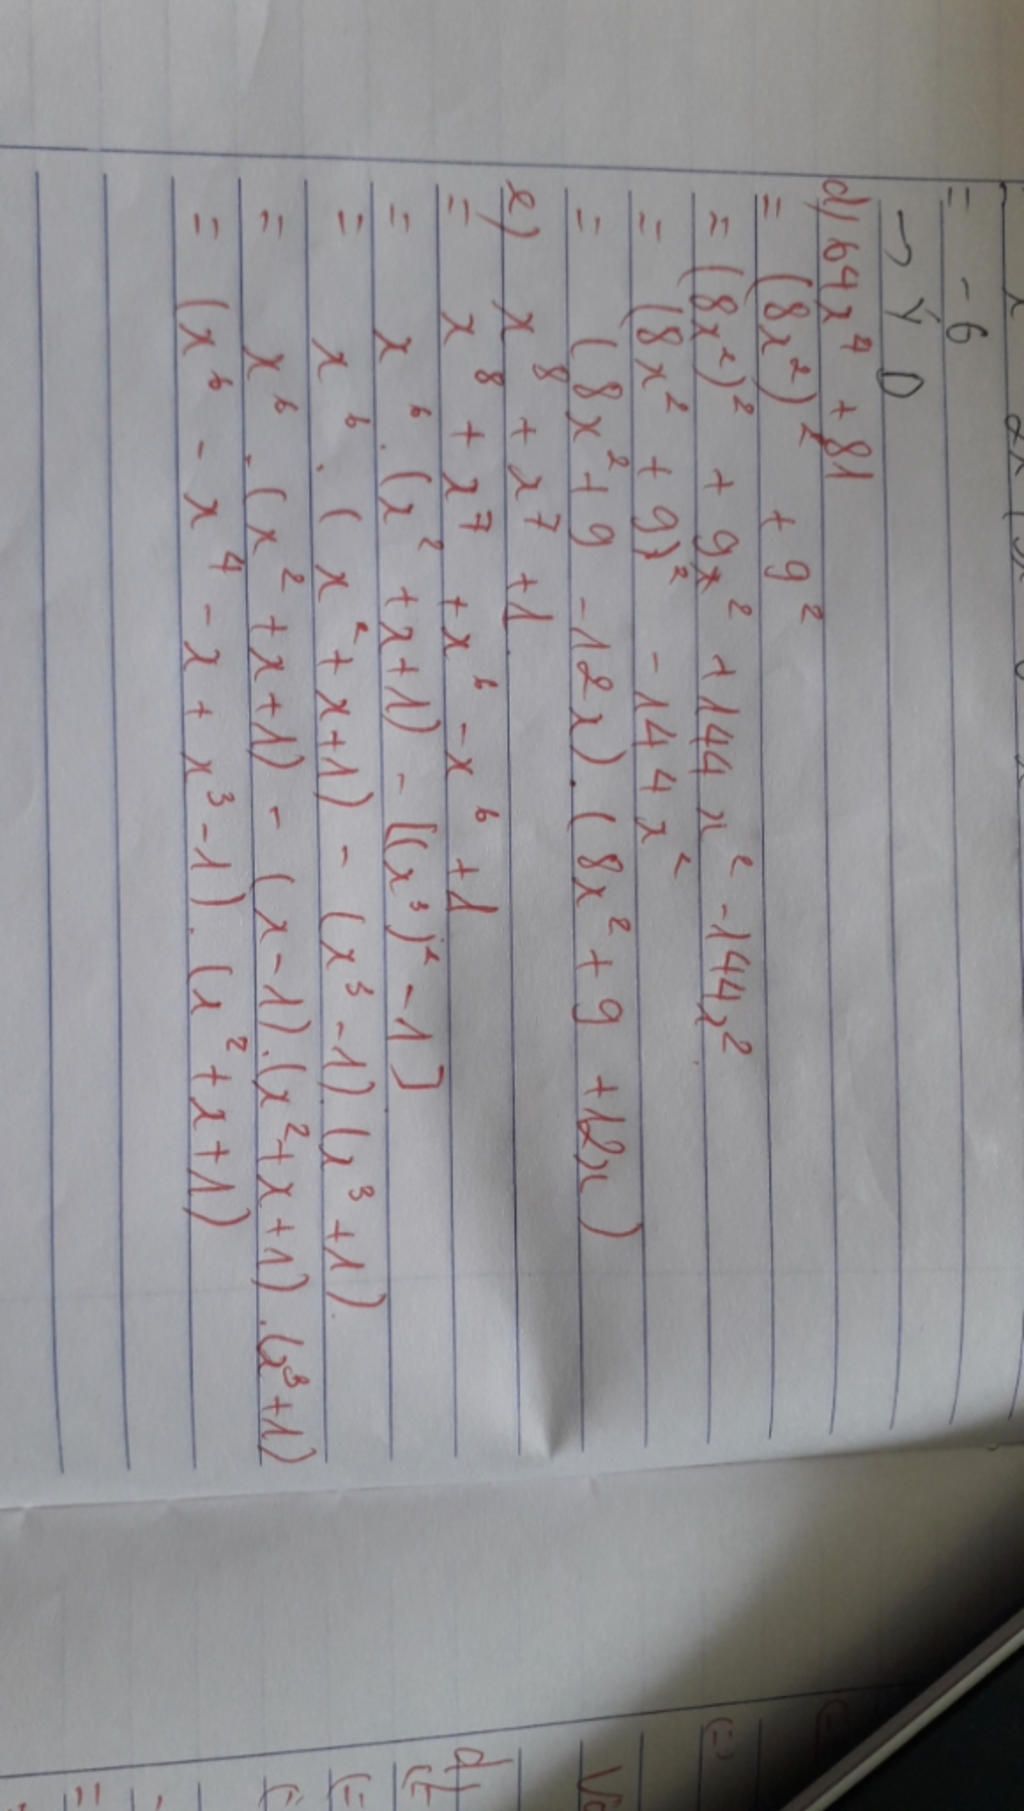 = -6
→ Ý D
d) 64x⁴ + 81
= (8x²)² + 9²
= (8x²)² + 9x² + 144x² - 144x²
= (8x² + 9)² - 144x²
= (8x² + 9 - 12x).(8x² + 9 + 12x)
e) x⁸ + x⁷ + 1
= x⁸ + x⁷ + x⁶ - x⁶ + 1
= x⁶.(x² + x + 1) - [(x³)² - 1]
= x⁶.(x² + x + 1) - (x³ - 1).(x³ + 1).
= x⁶.(x² + x + 1) - (x - 1).(x² + x + 1).(x³ + 1)
= (x⁶ - x⁴ - x + x³ - 1).(x² + x + 1)